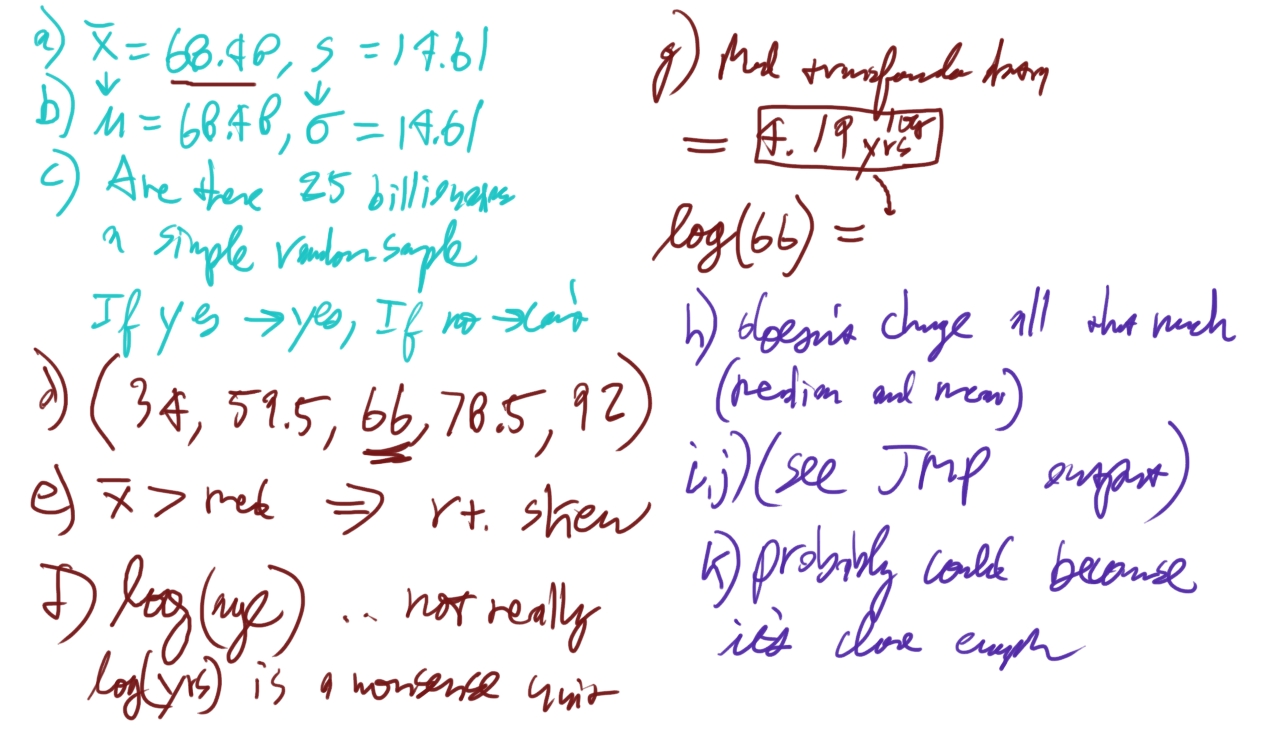 a) x̄ = 68.48, s = 14.61
↓ ↓
b) μ = 68.48, σ = 14.61
c) Are these 25 billionaires
a simple random sample
If yes → yes, If no → can't
d) (34, 59.5, 66, 78.5, 92)
e) x̄ > med ⇒ rt. skew
f) log(age) ... not really
log(yrs) is a nonsense unit
g) Med
= 4.19 log yrs
log(66) =
h) doesn't change all that much
(median and mean)
i,j) (see JMP output)
k) probably could because
it's close enough